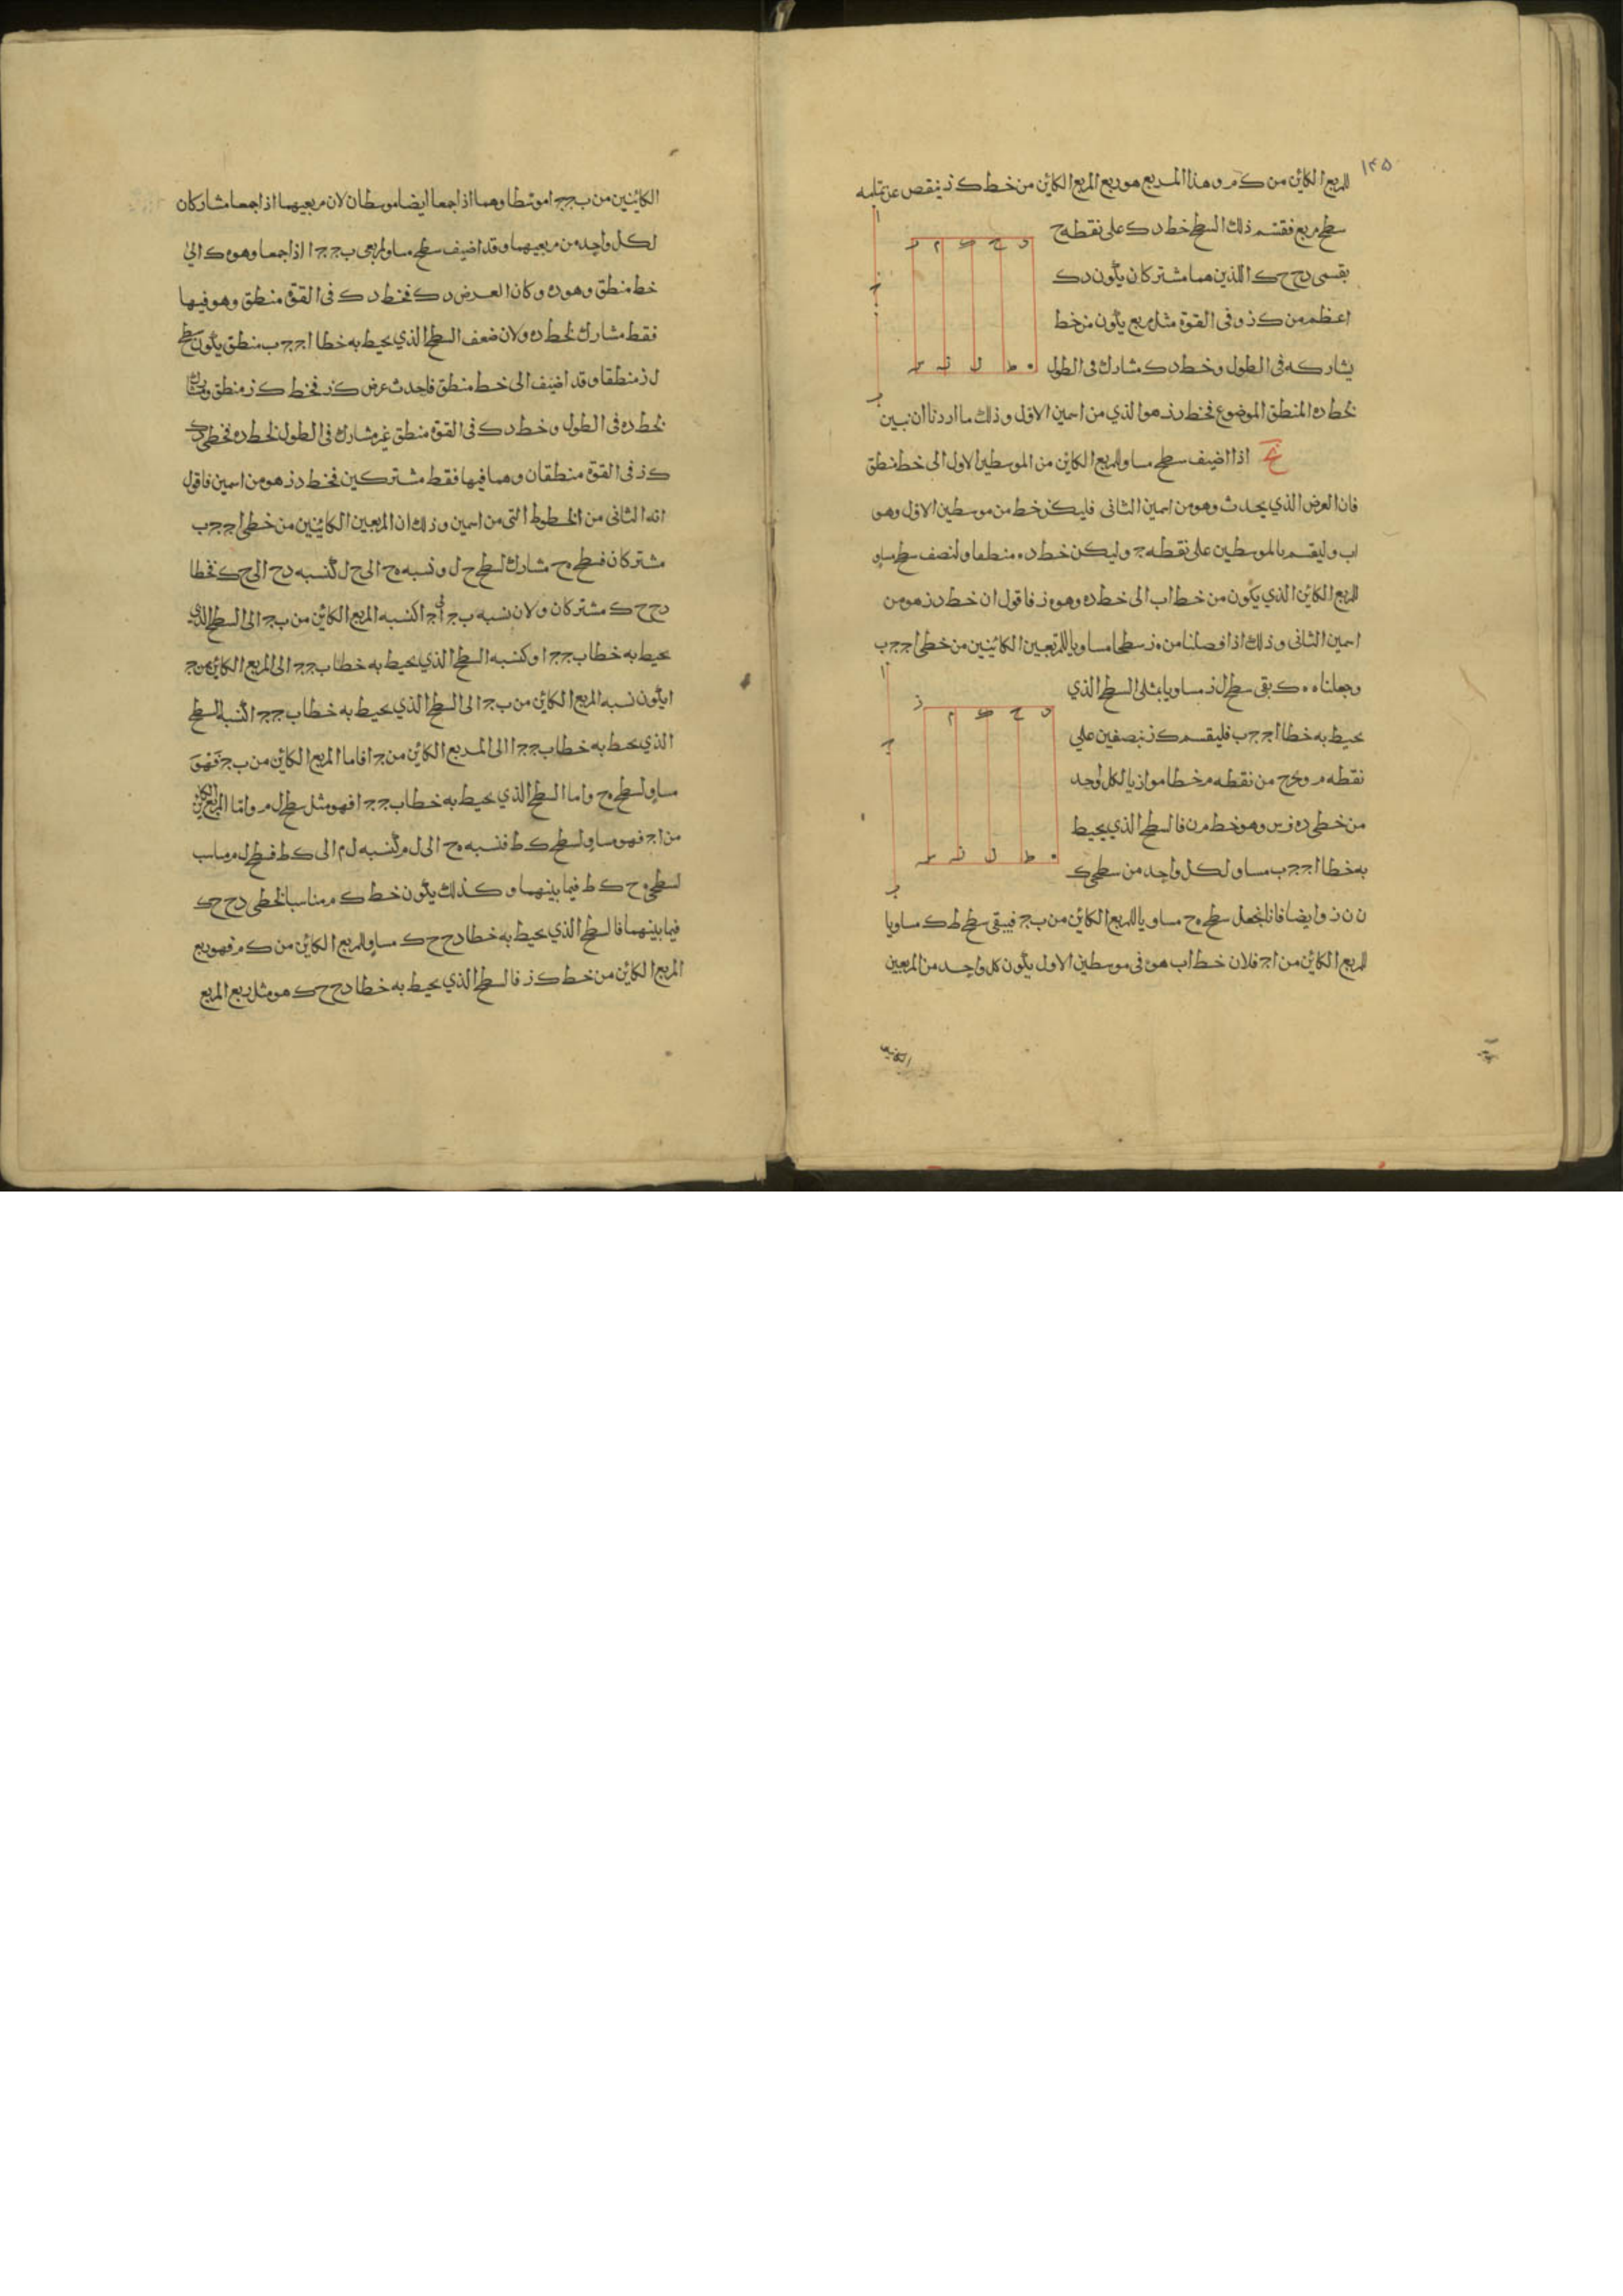 ١٣٥
للمربع الكائن من ك م وهذا المربع هو ربع المربع الكائن من خط ك ز ينقص عن تمامه
سطح مربع فقسم ذلك السطح خط د ك على نقطه ح
بقسمى د ح ح ك اللذين هما مشتركان يكون د ك
اعظم من ك ز وفى القوة مثل مربع يكون من خط
يشاركه فى الطول وخط د ك مشارك فى الطول
لخط ده المنطق الموضوع فخط د ز هو الذي من اسمين الاول وذلك ما اردنا ان نبين
اذا اضيف سطح مساو للمربع الكائن من الموسطين الاول الى خط منطق
فان العرض الذي يحدث وهو من اسمين الثانى فليكن خط من موسطين الاول وهو
اب وليقسم بالموسطين على نقطه ج وليكن خط ده منطقا ولنصف سطح مساو
للمربع الكائن الذي يكون من خط اب الى خط ده وهو ه ز فاقول ان خط د ز هو من
اسمين الثانى وذلك اذا فصلنا من ه ز سطحا مساويا للمربعين الكائنين من خطى اج ج ب
وجعلناه ه ك بقى سطح ل ز مساويا بمثلى السطح الذي
يحيط به خطا اج ج ب فليقسم ك ز بنصفين على
نقطه م ونخرج من نقطه م خطا موازيا لكل واحد
من خطى ده ز س وهو خط م ن فالسطح الذي يحيط
به خطا اج ج ب مساو لكل واحد من سطحى ك
ن ن ز وايضا فانا نجعل سطح ه ح مساويا للمربع الكائن من ب ج فيبقى سطح ط ك مساويا
للمربع الكائن من اج فلان خط اب هو فى موسطين الاول يكون كل واحد من المربعين
الكائنين
ا
ج
ب
د ح ك م ز
ه ط ل ن س
ا
ج
ب
د ح ك م ز
ه ط ل ن س
الكائنين من ب ج ج ا موسطا وهما اذا جمعا ايضا موسطان لان مربعيهما اذا جمعا مشاركان
لكل واحد من مربعيهما وقد اضيف سطح مساو لمربعى ب ج ج ا اذا جمعا وهو ه ك الى
خط منطق وهو ده وكان العرض د ك فخط د ك فى القوة منطق وهو فيها
فقط مشارك لخط ده ولان ضعف السطح الذي يحيط به خطا اج ج ب منطق يكون سطح
ل ز منطقا وقد اضيف الى خط منطق فاحدث عرض ك ز فخط ك ز منطق ومشارك
لخط ده فى الطول وخط د ك فى القوة منطق غير مشارك فى الطول لخط ده فخطى د ك
ك ز فى القوة منطقان وهما فيها فقط مشتركين فخط د ز هو من اسمين فاقول
انه الثانى من الخطوط التى من اسمين وذلك ان المربعين الكائنين من خطى اج ج ب
مشتركان فسطح ه ح مشارك لسطح ح ل ونسبه ه ح الى ح ل كنسبه د ح الى ح ك فخطا
د ح ح ك مشتركان ولان نسبه ب ج الى ج ا كنسبه المربع الكائن من ب ج الى السطح الذي
يحيط به خطا ب ج ج ا وكنسبه السطح الذي يحيط به خطا ب ج ج ا الى المربع الكائن من ج
ا يكون نسبه المربع الكائن من ب ج الى السطح الذي يحيط به خطا ب ج ج ا كنسبه السطح
الذي يحيط به خطا ب ج ج ا الى المربع الكائن من ج ا فاما المربع الكائن من ب ج فهو
مساو لسطح ه ح واما السطح الذي يحيط به خطا ب ج ج ا فهو مثل سطح ل م واما المربع الكائن
من اج فهو مساو لسطح ك ط فنسبه ه ح الى ل م كنسبه ل م الى ك ط فسطح ل م مناسب
لسطحى ه ح ك ط فيما بينهما وكذلك يكون خط ك م مناسبا لخطى د ح ح ك
فيما بينهما فالسطح الذي يحيط به خطا د ح ح ك مساو للمربع الكائن من ك م فهو ربع
المربع الكائن من خط ك ز فالسطح الذي يحيط به خطا د ح ح ك هو مثل ربع المربع